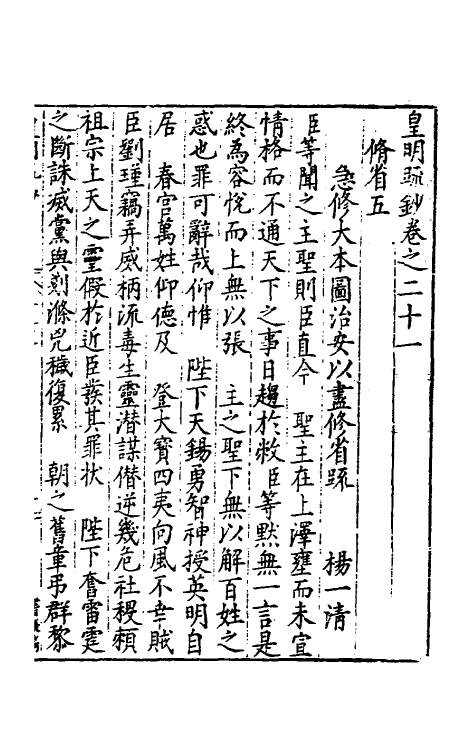 皇明疏鈔卷之二十一
脩省五
急修大本圖治安以盡修省疏 楊一清
臣等聞之主聖則臣直今 聖主在上澤壅而未宣
情格而不通天下之事日趨於敝臣等默無一言是
終為容悅而上無以張 主之聖下無以解百姓之
惑也罪可辭哉仰惟 陛下天錫勇智神授英明自
居 春宮萬姓仰德及 登大寶四夷向風不幸賊
臣劉瑾竊弄威柄流毒生靈潛謀僭逆幾危社稷賴
祖宗上天之靈假於近臣發其罪狀 陛下奮雷霆
之斷誅滅黨與剗滌兇穢復累 朝之舊章弔群黎